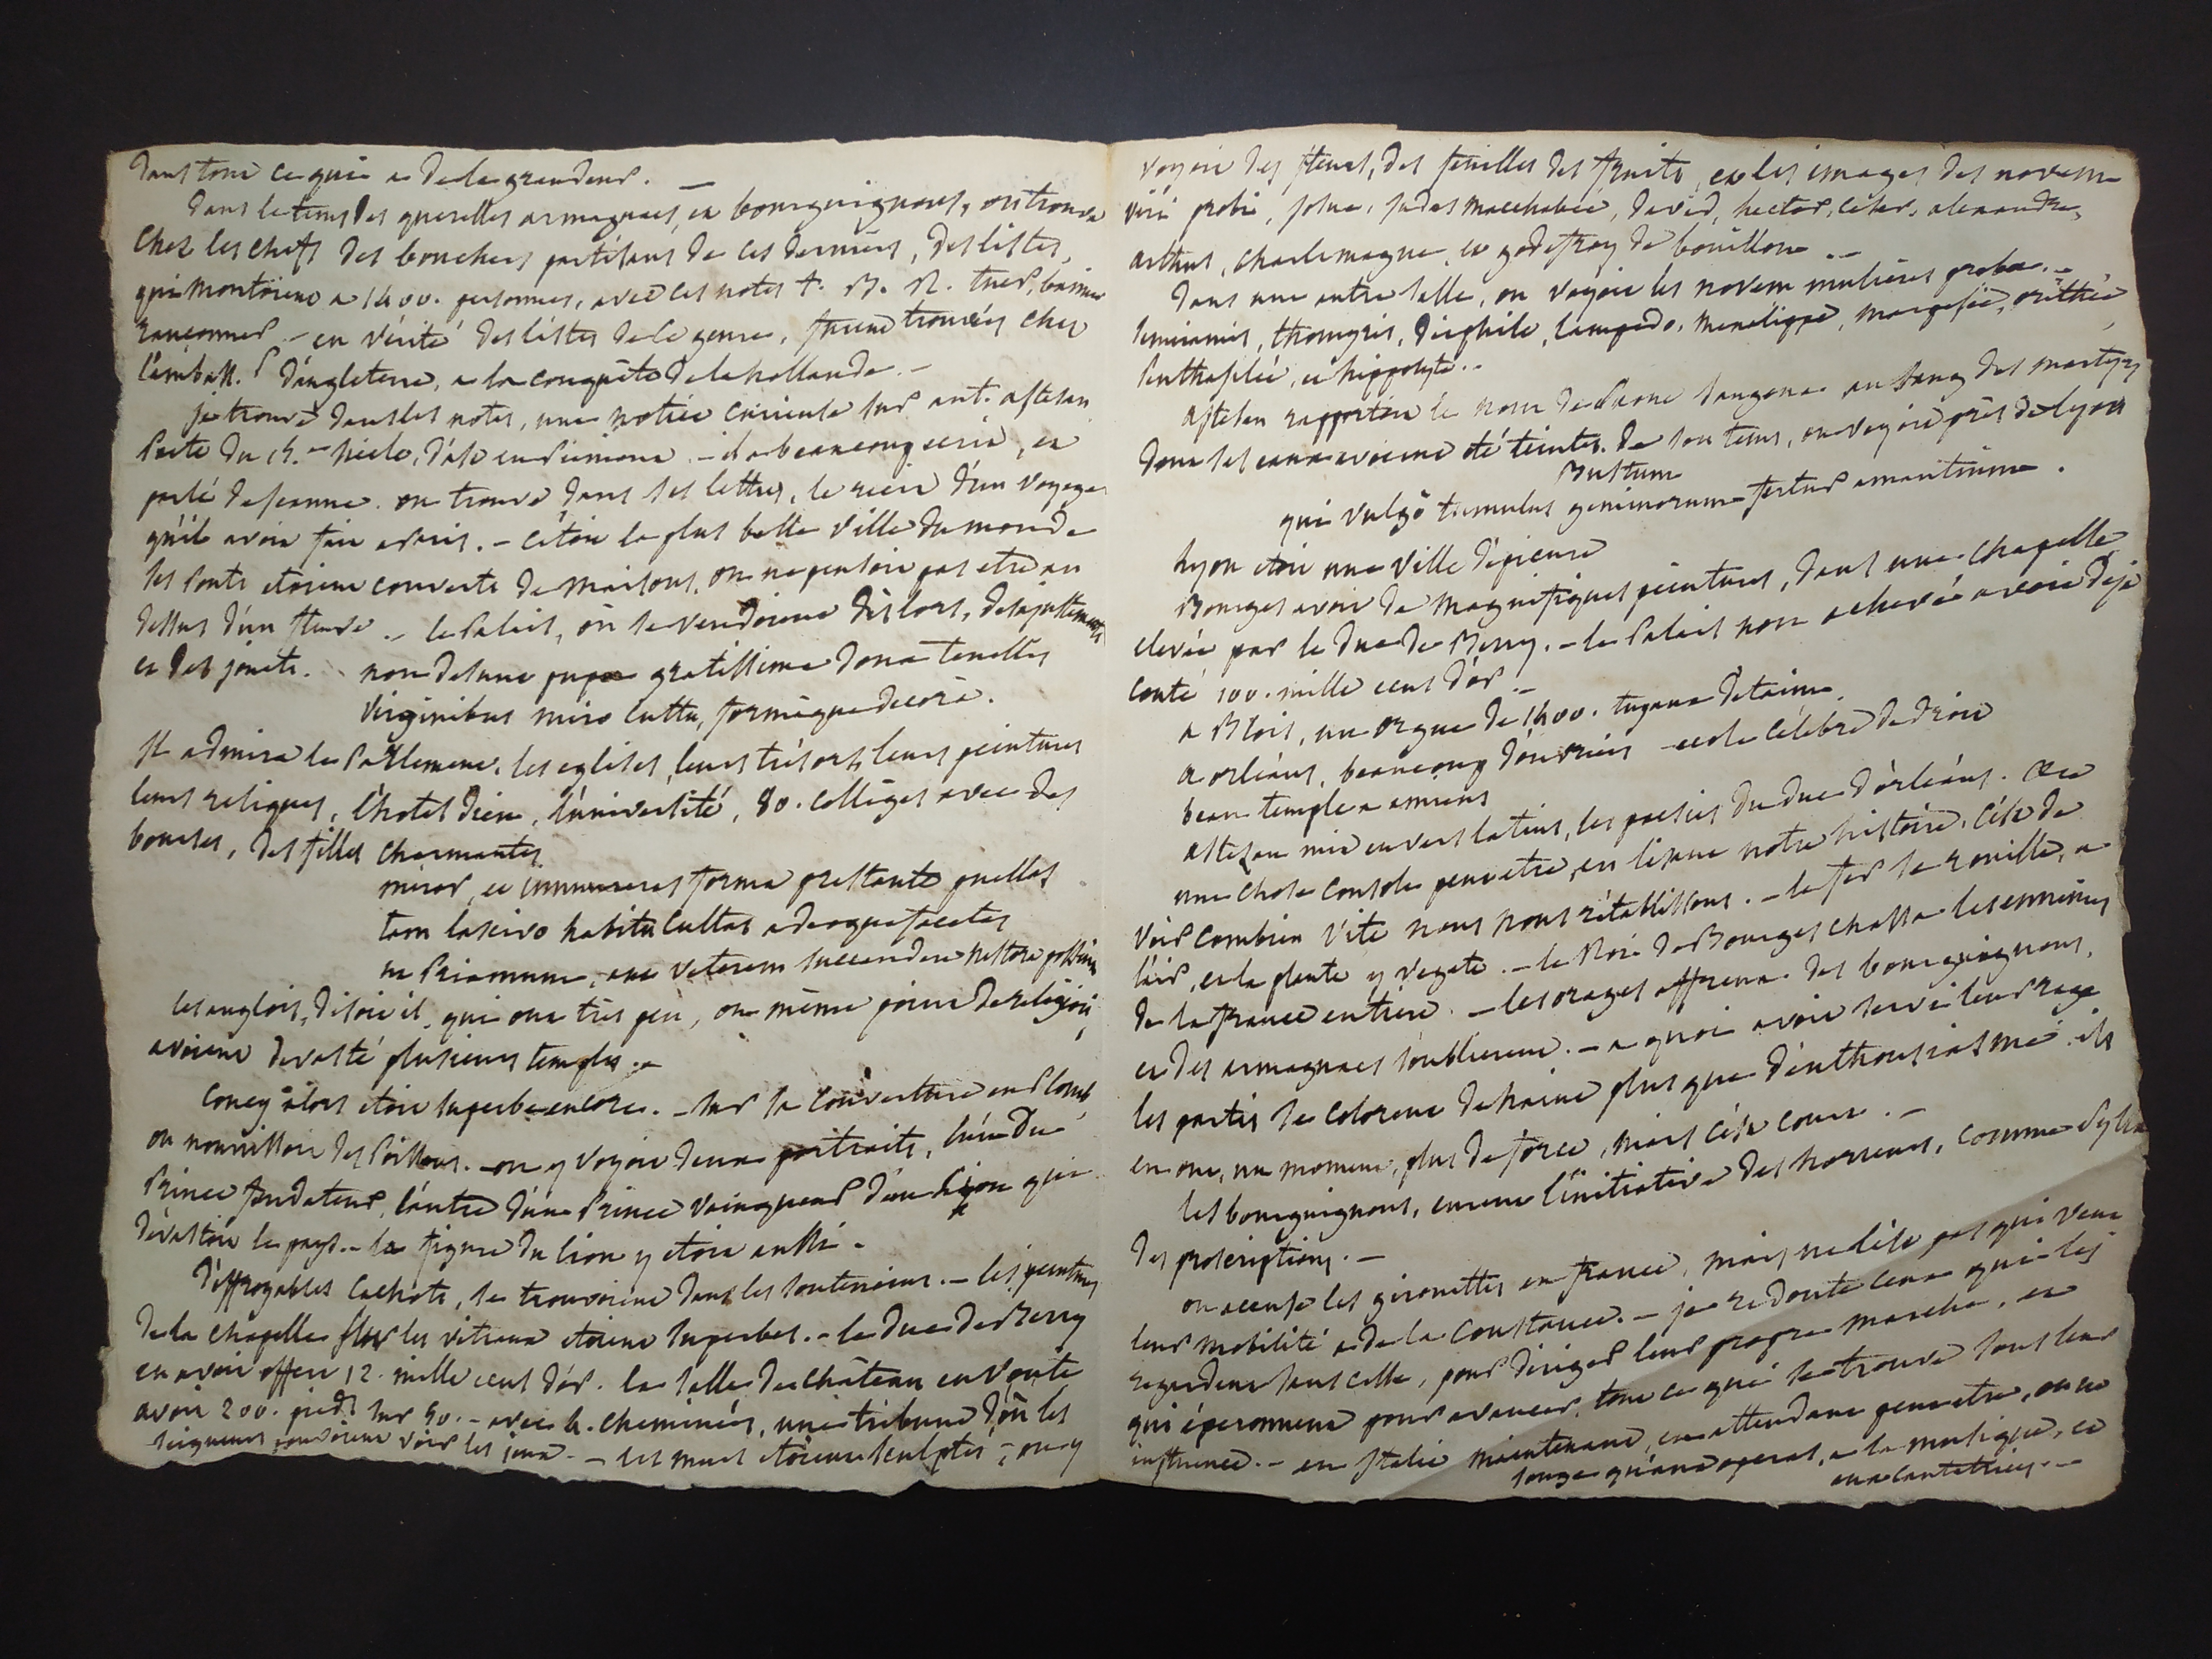 dans tout ce qui a de la grandeur. —
dans le tems des querelles armagnacs, et bourguignons, on trouva
chez les chefs des bouchers partisans de ces derniers, des listes,
qui montoient a 1400. personnes, avec ces notes t. B. R. tuer, bannir
rançonner. — en vérité des listes de ce genre, furent trouvées chez
l'embass.r d'angleterre, a la conquête de la hollande. —
je trouve dans les notes, une notice curieuse sur ant. astesan
Poete du 15.me siecle, d'ast en Piémont. — il a beaucoup ecrit, et
parlé de jeanne. on trouve dans ses lettres, le récit d'un voyage
qu'il avoit fait a Paris. — c'étoit la plus belle ville du monde
les Ponts etoient couverts de maisons, on ne pensoit pas etre au
dessus d'un fleuve. — le Palais, où se vendoient dès lors, des ajustements
et des jouets. non desunt pupae gratissima dona tenellis
virginibus miro cultu, formaque decora.
Il admira le Parlement, les eglises, leurs trésors, leurs peintures
leurs reliques, l'hotel dieu, l'université, 80. collèges avec des
bourses, des filles charmantes.
miror, et innumeras forma prestante puellas
tam lascivo habitu cultas adeoque facetas
ut Priamum, aut veterem succendere nestora possint
les anglois, disoit il, qui ont très peu, ou même point de religion,
avoient devasté plusieurs temples. —
Coucy alors etoit superbe encore. — sur la couverture en Plomb,
on nourrissoit des Poissons. — on y voyoit deux portraits, l'un du
Prince fondateur, l'autre d'un Prince vainqueur d'un lion qui
dévastoit le pays. — la figure du lion y etoit aussi. —
d'effroyables cachots, se trouvoient dans les souterrains. — les peintures
de la chapelle sur les vitraux etoient superbes. — le duc de Berry
en avoit offert 12. mille ecus d'or. la salle du château en voute
avoit 200. pieds sur 50. — avec 4. cheminées, une tribune d'où les
seigneurs pouvoient voir les jeux. — les murs etoient sculptés, on y
voyoit des fleurs, des feuilles des fruits, et les images des novem
viri probi, josue, judas macchabée, david, hector, césar, alexandre,
arthus, charlemagne, et godefroy de bouillon. —
dans une autre salle, on voyoit les novem mulieres probae. —
semiramis, thomyris, déiphile, lampedo, menelippe, margesie, orithée,
Penthasilée, et hippolyte. —
astesan rapportoit le nom de Saone sangona au sang des martyrs
dont les eaux avoient été teintes. de son tems, on voyoit près de lyon
Bustum
qui vulgò tumulus geminorum fertur amantium.
lyon etoit une ville d'épicure
Bourges avoit de magnifiques peintures, dans une chapelle
elevée par le duc de Berry. — le Palais non achevé avoit déja
couté 100. mille ecus d'or. —
a Blois, un orgue de 1400. tuyaux d'etaim.
a orléans, beaucoup d'ouvriers — ecole célèbre de droit
beau temple a amiens
astesan mit en vers latins, les poesies du duc d'orléans.
une chose console peut etre, en lisant notre histoire, c'est de
voir combien vite nous nous rétablissons. — le fer se rouille, a
l'air, et la plante y vegete. — le Roi de Bourges chassa les ennemis
de la france entière. — les orages affreux des bourguignons,
et des armagnacs s'oublierent. — a quoi avoit servi leur rage
les partis se colorent de haine plus que d'enthousiasme. ils
en ont, un moment, plus de force, mais c'est court. —
les bourguignons, eurent l'initiative des horreurs, comme Sylla
des proscriptions. —
on accuse les girouettes en france, mais ne l'est pas qui veut
leur mobilité a de la constance. — je redoute ceux qui les
regardent sans cesse, pour diriger leur propre marche, et
qui éperonnent pour avancer, tout ce qui se trouve sous leur
influence. — en Italie maintenant, en attendant peut etre, on ne
songe qu'aux operas, a la musique, et
aux cantatrices. —